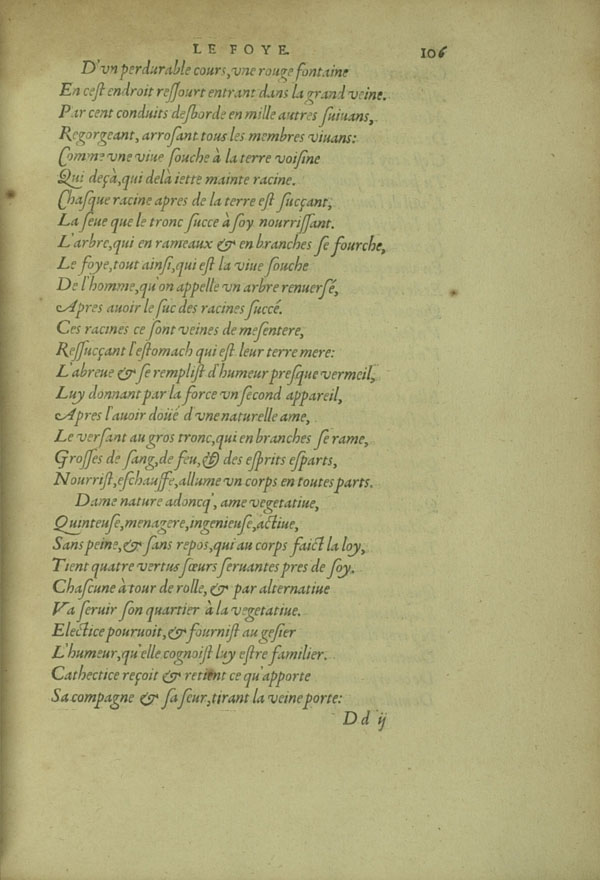 LE FOYE. 106
D'vn perdurable cours, vne rouge fontaine
En ceſt endroit reſſourt entrant dans la grand veine.
Par cent conduits desborde en mille autres ſuiuans,
Regorgeant, arroſant tous les membres viuans:
Comme vne viue ſouche à la terre voiſine
Qui deçà, qui delà iette mainte racine.
Chaſque racine apres de la terre eſt ſucçant,
La ſeue que le tronc ſucce à ſoy nourriſſant.
L'arbre, qui en rameaux & en branches ſe fourche,
Le foye, tout ainſi, qui eſt la viue ſouche
De l'homme, qu'on appelle vn arbre renuerſé,
Apres auoir le ſuc des racines ſuccé.
Ces racines ce ſont veines de meſentere,
Reſſucçant l'eſtomach qui eſt leur terre mere:
L'abreue & ſe rempliſt d'humeur preſque vermeil,
Luy donnant par la force vn ſecond appareil,
Apres l'auoir doüé d'vne naturelle ame,
Le verſant au gros tronc, qui en branches ſe rame,
Groſſes de ſang, de feu, & des eſprits eſparts,
Nourriſt, eſchauffe, allume vn corps en toutes parts.
Dame nature adoncq', ame vegetatiue,
Quinteuſe, menagere, ingenieuſe, actiue,
Sans peine, & ſans repos, qui au corps faict la loy,
Tient quatre vertus ſœurs ſeruantes pres de ſoy.
Chaſcune à tour de rolle, & par alternatiue
Va ſeruir ſon quartier à la vegetatiue.
Electice pouruoit, & fourniſt au geſier
L'humeur, qu'elle cognoiſt luy eſtre familier.
Cathectice reçoit & retient ce qu'apporte
Sa compagne & ſa ſeur, tirant la veine porte:
D d ij